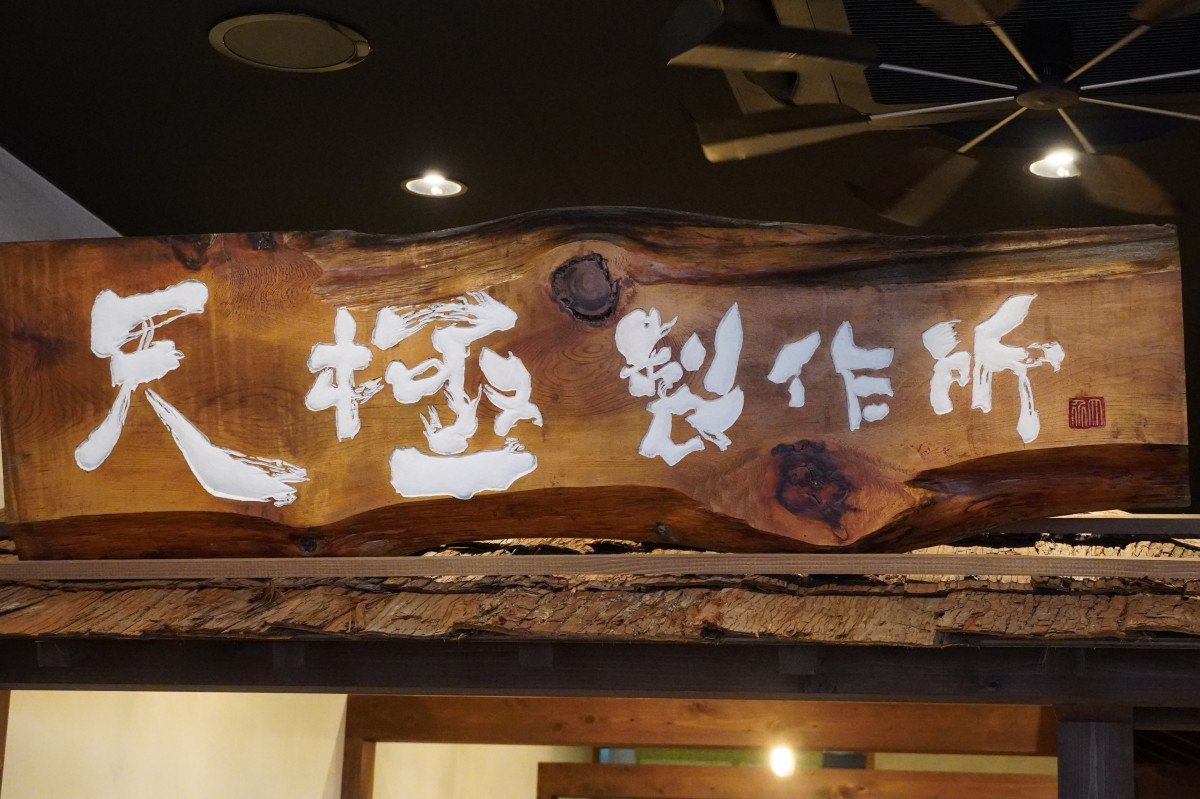 天極製作所